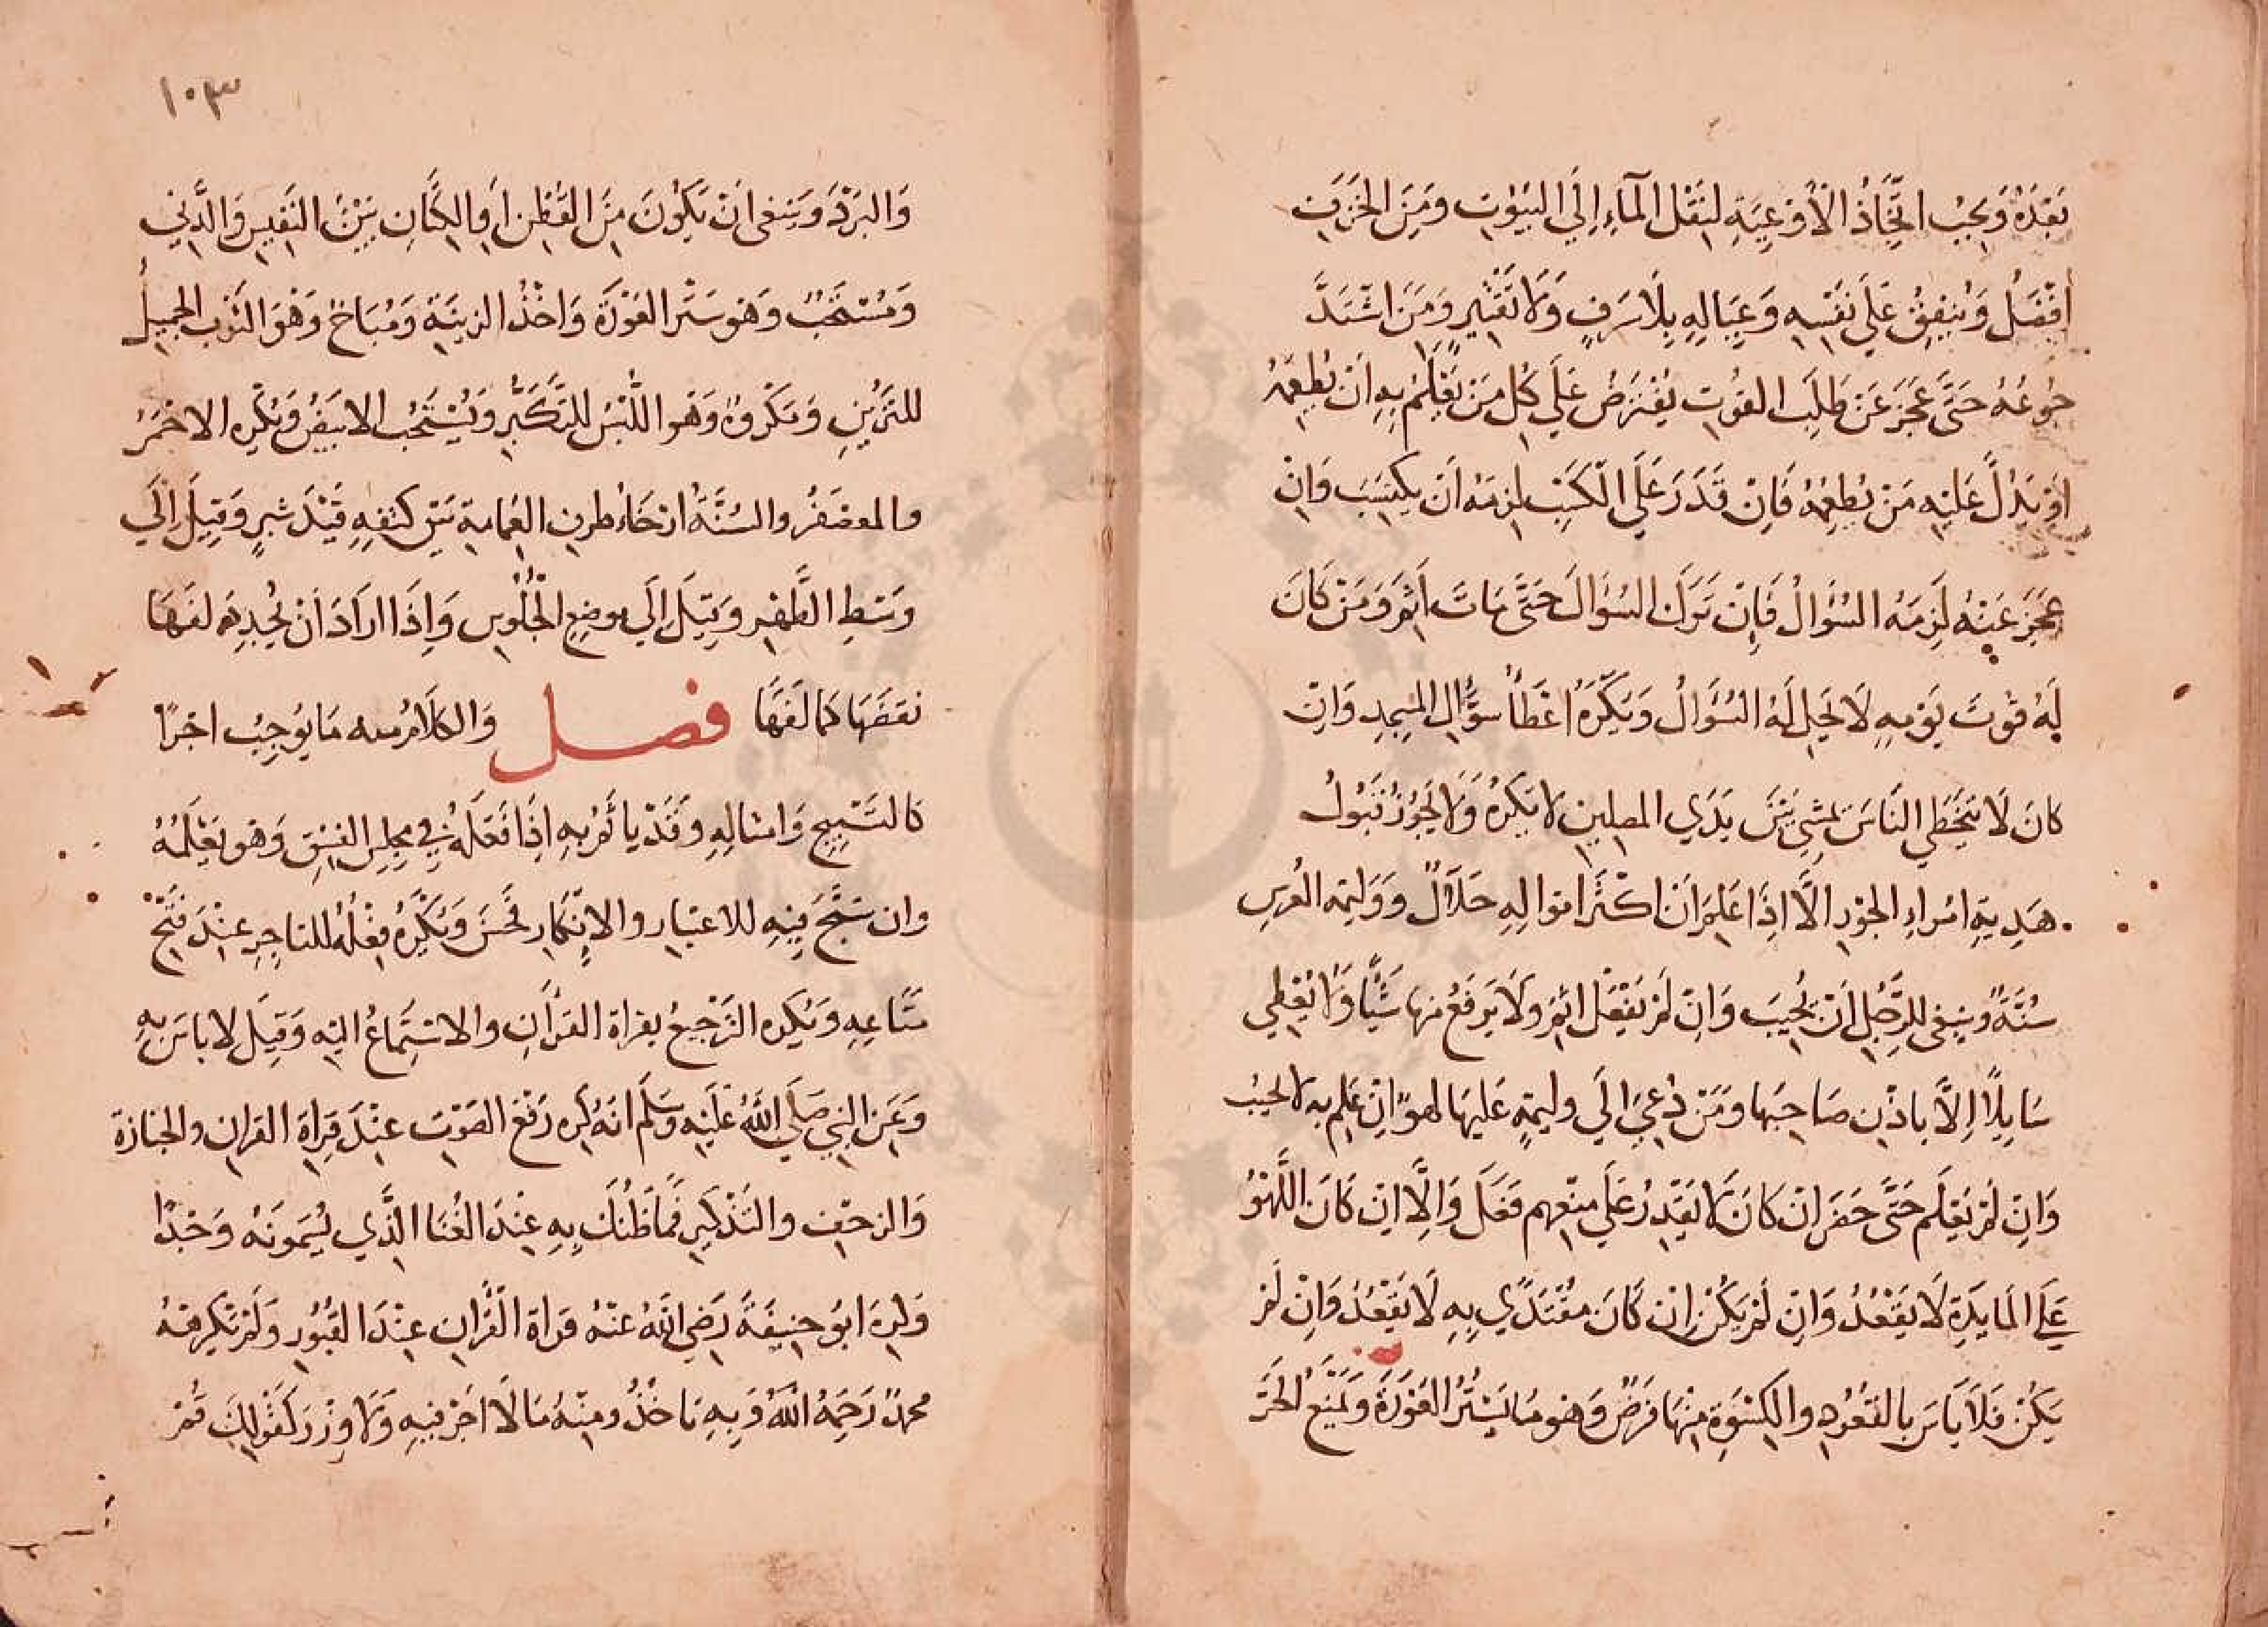 بَعْدَهُ وَيَجِبُ اتِّخَاذُ الْأَوْعِيَةِ لِنَقْلِ الْمَاءِ إِلَى الْبُيُوتِ وَمِنَ الْخَزَفِ
أَفْضَلُ وَيُنْفِقُ عَلَى نَفْسِهِ وَعِيَالِهِ بِلَا سَرَفٍ وَلَا تَقْتِيرٍ وَمَنِ اشْتَدَّ
جُوعُهُ حَتَّى عَجَزَ عَنْ طَلَبِ الْقُوتِ يُفْتَرَضُ عَلَى كُلِّ مَنْ يَعْلَمُ بِهِ أَنْ يُطْعِمَهُ
أَوْ يَدُلَّ عَلَيْهِ مَنْ يُطْعِمُهُ فَإِنْ قَدَرَ عَلَى الْكَسْبِ لَزِمَهُ أَنْ يَكْتَسِبَ وَإِنْ
عَجَزَ عَنْهُ لَزِمَهُ السُّؤَالُ فَإِنْ تَرَكَ السُّؤَالَ حَتَّى مَاتَ أَثِمَ وَمَنْ كَانَ
لَهُ قُوتُ يَوْمِهِ لَا يَحِلُّ لَهُ السُّؤَالُ وَيُكْرَهُ اعْطَاءُ سُؤَّالِ الْمَسْجِدِ وَإِنْ
كَانَ لَا يَتَخَطَّى النَّاسَ يَمْشِي بَيْنَ يَدَيِ المصلين لَا يُكْرَهُ وَلَا يَجُوزُ قَبُولُ
هَدِيَّةِ امراءِ الجَوْرِ الَّا اذَا عَلِمَ أَنَّ اكْثَرَ امْوَالِهِ حَلَالٌ وَوَلِيمَة العُرسِ
سُنَّةٌ وينبغي للرَّجُلِ أَنْ يُجِيبَ وَانْ لَمْ يَفْعَل اثِمَ ولَا يَرْفَعُ منها شَيْئًا وَلَا يُعْطِي
سَايِلًا إِلَّا باذْنِ صَاحِبِهَا ومَنْ دُعِيَ الَى وليمةٍ عَلَيْهَا لهوٌ انْ عَلِم به لَا يجيبُ
وَانْ لَمْ يَعْلَم حَتَّى حَضَرَ انْ كَانَ لَا يَقْدِرُ عَلَى مَنْعِهِم فَعَلَ وَالَّا انْ كَانَ اللَّهْوُ
عَلَى المَايِدَةِ لَا يَقْعُدُ وَانْ لَمْ يَكُنْ انْ كَانَ مُقْتَدًى بِهِ لَا يَقْعُدُ وَانْ لَمْ
يَكُنْ فَلَا بَاسَ بِالقُعُودِ والكِسْوَةِ مِنْهَا فَرْضٌ وَهو مَا يَسْتُرُ العَوْرَةَ وَيَمْنَعُ الحَرَّ
١٠٣
وَالبَرْدَ وَيَنْبَغِي انْ يَكُونَ مِنَ القُطْنِ أَوِ الكَتَّانِ بَيْنَ النَفِيسِ وَالدَّنِي
وَمُسْتَحَبٌ وَهو سَتْر العَوْرَةِ وَاخْذُ الزِينَةِ وَمُبَاحٌ وَهْوَ الثَّوْب الجَمِيلُ
للتَزيينِ وَمَكْرُوهٌ وَهو اللُّبْسُ للتَّكَبُّرِ وَيُسْتَحَبُّ الابيَضُ وَيُكْرَه الاحْمَرُ
والمعصفَرُ والسُنَّةُ ارْخَاءُ طرفِ العِمَامَةِ بَيْنَ كَتِفِهِ قَيْدَ شِبْرٍ وَقِيلَ إِلَى
وَسَطِ الظَّهْرِ وَقِيلَ إِلَى موضِعِ الجُلُوسِ وَإِذَا ارَادَ أنْ يُجَدِدَ لَفَّهَا
نَقَضَهَا كَمَا لَفَّهَا فصل وَالكَلَامُ منه مَا يُوجِبُ اجْرًا
كَالتَسْبِيحِ وَامثالِهِ وقَدْ يَاثَمُ بِهِ اذَا فَعَلَهُ فِي مَجلِسِ الفِسْقِ وَهو يَعْلَمُهُ
وان سَبَّحَ فِيهِ للاعتبار والانْكَارِ فَحَسَن وَيُكْرَهُ فِعْلُهُ للتاجِرِ عِنْدَ فَتْحِ
مَتَاعِهِ وَيُكْرَه التَرْجِيعُ بقراة القرْآنِ والاستِمَاعُ اليْهِ وَقِيلَ لا باسَ بهِ
وَعَنِ النَبِي صَلَى اللهُ عَلَيْهِ وَسَلَّمَ انَهُ كَرِه رَفْعَ الصَوْتِ عِنْدَ قِرَاةِ القران والجنازة
وَالزحف والتَذكيرِ فَمَا ظَنُّكَ بِهِ عِنْدَ الغُنَا الَّذِي يُسَمونَهُ وَجْدًا
وَكرِهَ ابُو حَنِيفَةَ رَضِيَ اللهُ عنْهُ قراةَ القُرْانِ عِنْدَ القُبُورِ وَلَمْ يَكْرَهْهُ
محمدٌ رَحِمَهُ اللهُ وَبِهِ نَاخُذُ ومِنْهُ مَا لَا اجْرَ فِيهِ وَلَا وِزْرَ كَقَوْلِكَ قُمْ